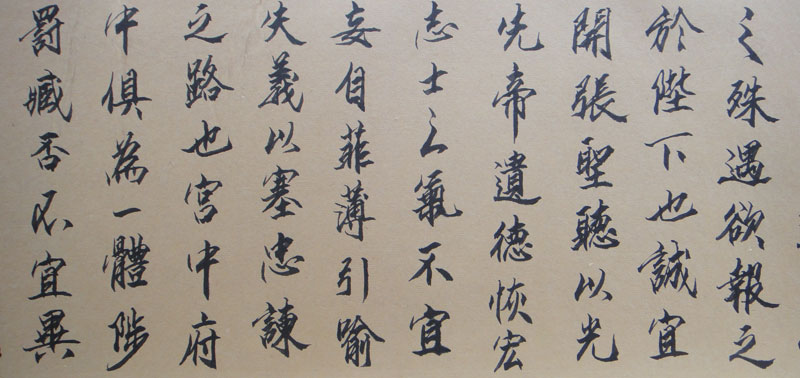 之殊遇欲報之
於陛下也誠宜
開張聖聽以光
先帝遺德恢宏
志士之氣不宜
妄自菲薄引喻
失義以塞忠諫
之路也宮中府
中俱為一體陟
罰臧否不宜異